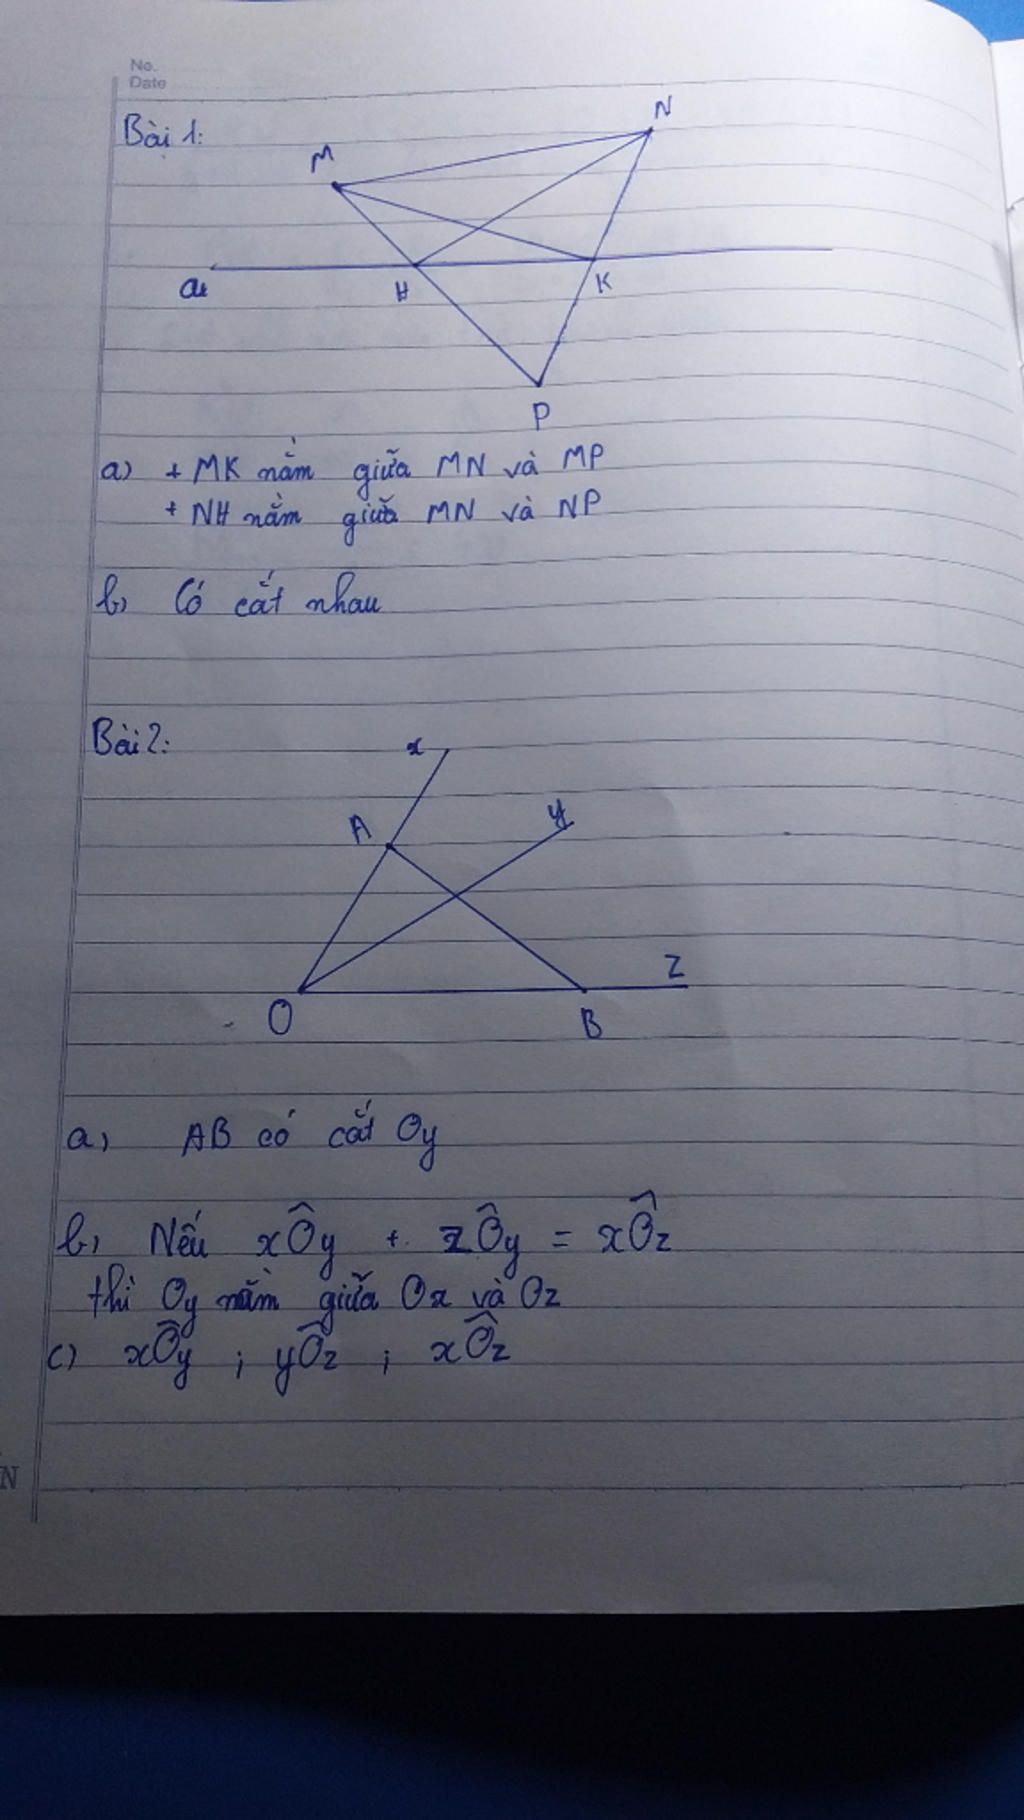 No.
Date
Bài 1:
N
M
a
H
K
P
a) + MK nằm giữa MN và MP
+ NH nằm giữa MN và NP
b) Có cắt nhau
Bài 2:
x
A
y
z
O
B
a) AB có cắt Oy
b) Nếu xÔy + zÔy = xÔz
thì Oy nằm giữa Ox và Oz
c) xÔy ; yÔz ; xÔz
N